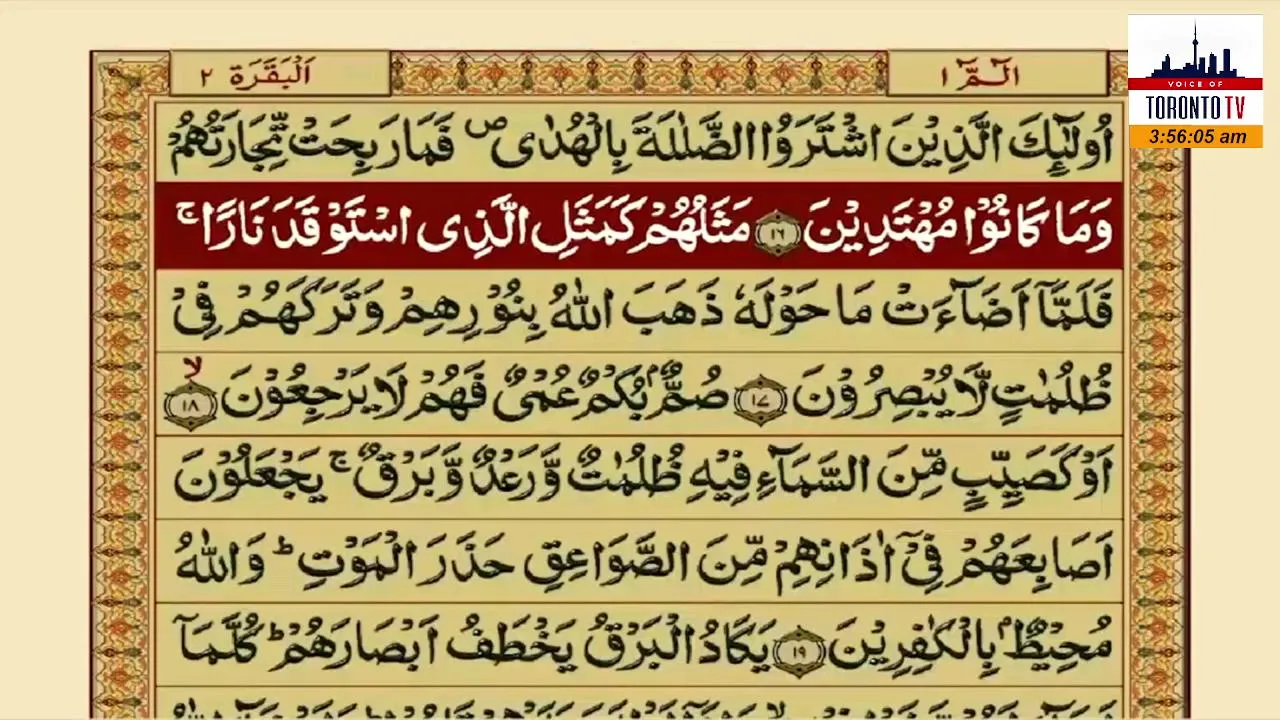 الٓمّٓ ١
اَلْبَقَرَة ٢
VOICE OF
TORONTO TV
3:56:05 am
اُولٰٓئِكَ الَّذِيْنَ اشْتَرَوُا الضَّلٰلَةَ بِالْهُدٰى ۖ فَمَا رَبِحَتْ تِّجَارَتُهُمْ
وَمَا كَانُوْا مُهْتَدِيْنَ ١٦ مَثَلُهُمْ كَمَثَلِ الَّذِى اسْتَوْقَدَ نَارًا ۚ
فَلَمَّآ اَضَآءَتْ مَا حَوْلَهٗ ذَهَبَ اللّٰهُ بِنُوْرِهِمْ وَتَرَكَهُمْ فِىْ
ظُلُمٰتٍ لَّا يُبْصِرُوْنَ ١٧ صُمٌّۢ بُكْمٌ عُمْىٌ فَهُمْ لَا يَرْجِعُوْنَ ۙ ١٨
اَوْ كَصَيِّبٍ مِّنَ السَّمَآءِ فِيْهِ ظُلُمٰتٌ وَّرَعْدٌ وَّبَرْقٌ ۚ يَجْعَلُوْنَ
اَصَابِعَهُمْ فِىْٓ اٰذَانِهِمْ مِّنَ الصَّوَاعِقِ حَذَرَ الْمَوْتِ ؕ وَاللّٰهُ
مُحِيْطٌۢ بِالْكٰفِرِيْنَ ١٩ يَكَادُ الْبَرْقُ يَخْطَفُ اَبْصَارَهُمْ ؕ كُلَّمَآ